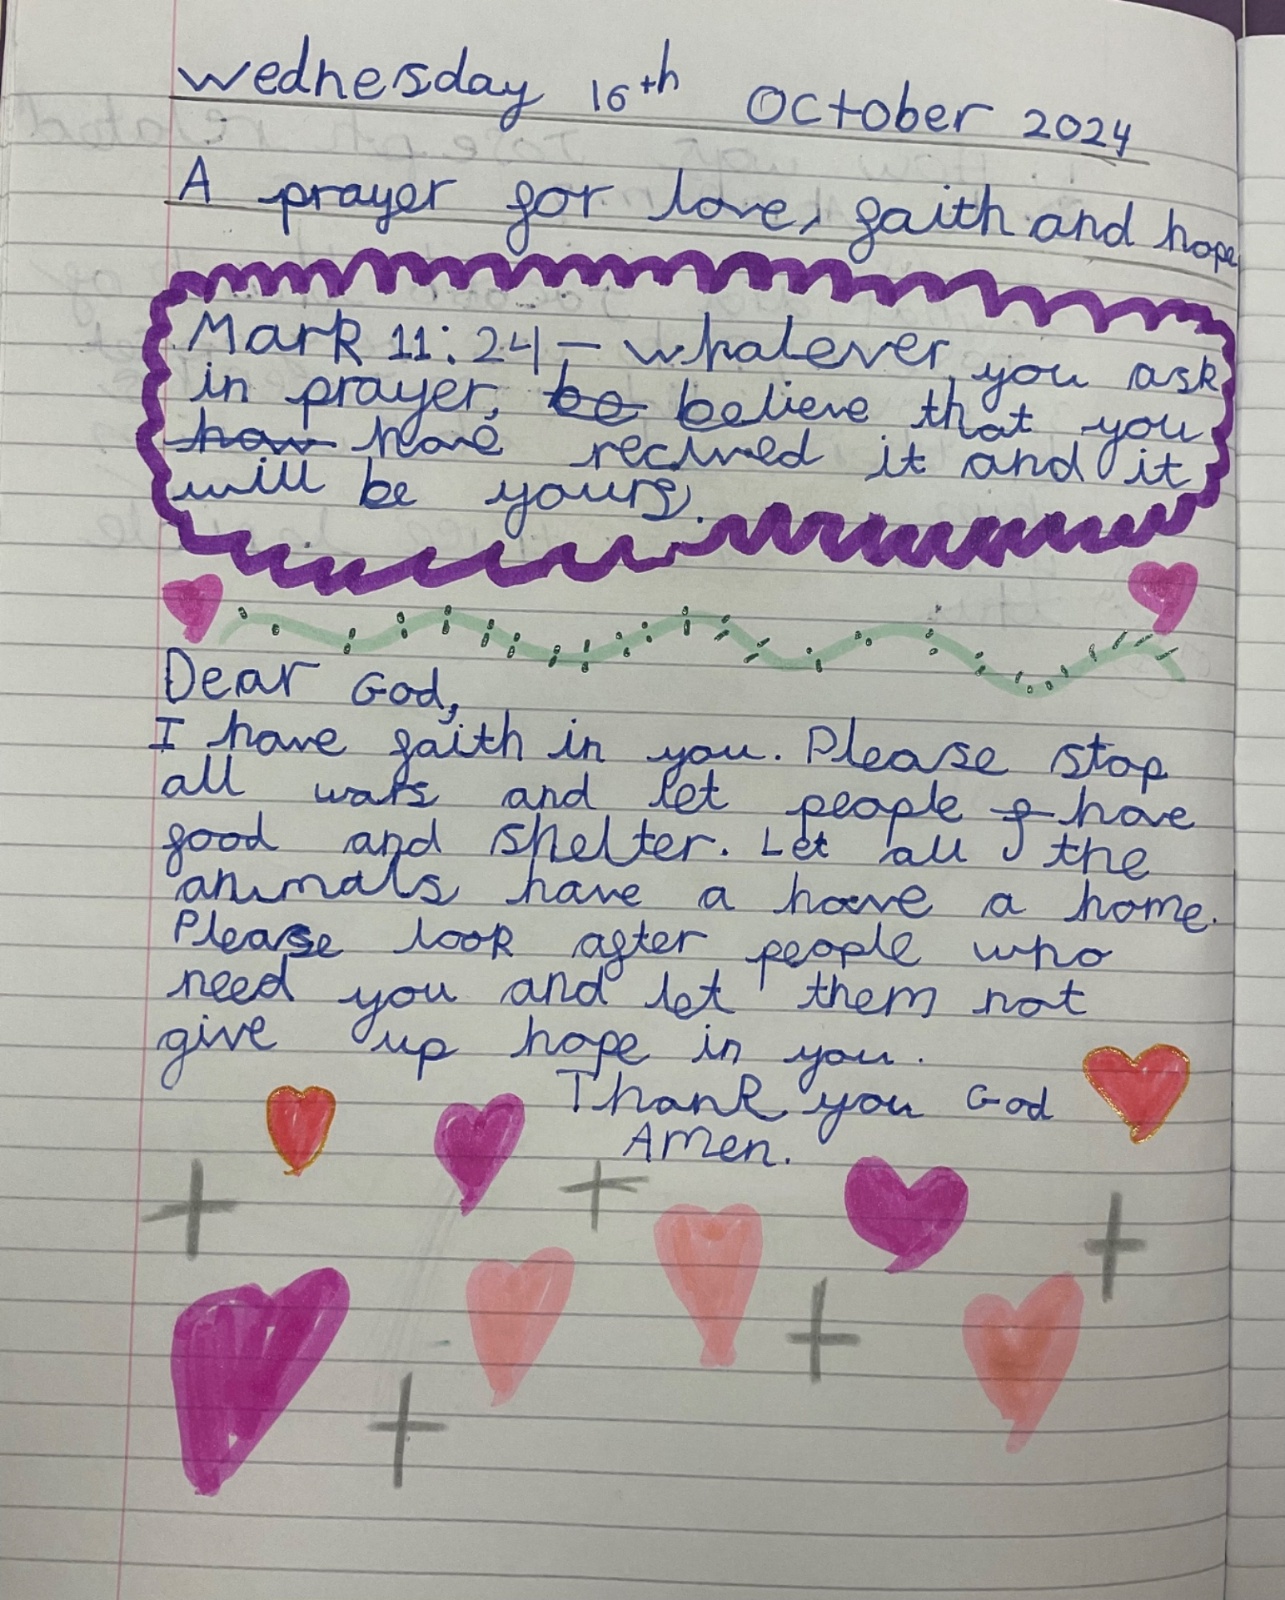 Wednesday 16th October 2024
A prayer for love, faith and hope
Mark 11:24 – whatever you ask
in prayer, be believe that you
hav have recived it and it
will be yours.
Dear God,
I have faith in you. Please stop
all wars and let people f have
food and shelter. Let all the
animals have a have a home.
Please look after people who
need you and let them not
give up hope in you.
Thank you God
Amen.